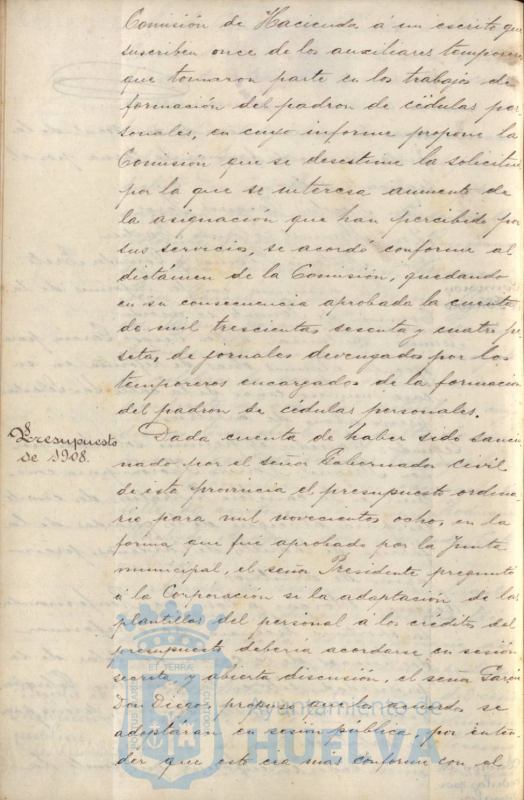 Comisión de Hacienda á un escrito que
suscriben once de los auxiliares temporeros
que tomaron parte en los trabajos de
formación del padron de cédulas per-
sonales, en cuyo informe propone la
Comisión que se desestime la solicitud
por la que se interesa aumento de
la asignación que han percibido por
sus servicios, se acordó conforme al
dictámen de la Comisión, quedando
en su consecuencia aprobada la cuenta
de mil trescientas sesenta y cuatro pe-
setas, de jornales devengados por los
temporeros encargados de la formación
del padron de cédulas personales.
8
Presupuesto
de 1908.
Dada cuenta de haber sido sancio-
nado por el señor Gobernador civil
de esta provincia el presupuesto ordina-
rio para mil novecientos ocho, en la
forma que fué aprobado por la Junta
municipal, el señor Presidente preguntó
á la Corporación si la adaptación de las
plantillas del personal á los créditos del
presupuesto debería acordarse en sesión
secreta, y abierta discusión, el señor Garcia
Don Diego, propuso que los acuerdos se
adoptáran en sesión pública, por enten-
der que esto era mas conforme con el
ET TERRÆ
CUSTODIA
Ayuntamiento de
HUELVA